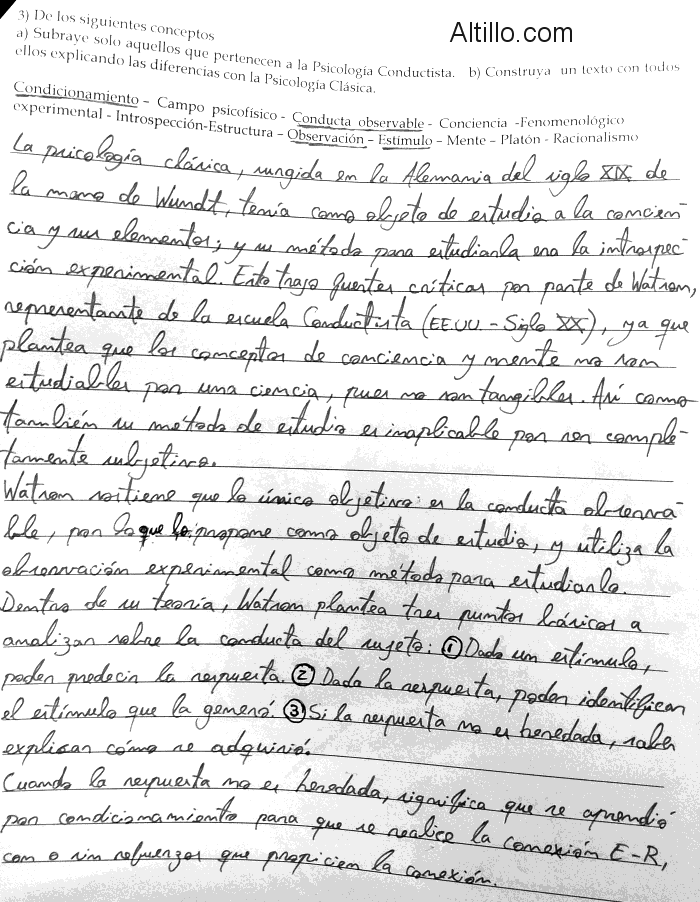 3) De los siguientes conceptos
Altillo.com
a) Subraye solo aquellos que pertenecen a la Psicología Conductista. b) Construya un texto con todos
ellos explicando las diferencias con la Psicología Clásica.
Condicionamiento - Campo psicofísico - Conducta observable - Conciencia -Fenomenológico
experimental - Introspección-Estructura - Observación - Estímulo - Mente - Platón - Racionalismo
La psicología clásica, surgida en la Alemania del siglo XIX de
la mano de Wundt, tenía como objeto de estudio a la concien-
cia y sus elementos; y su método para estudiarla era la introspec-
ción experimental. Esto trajo fuertes críticas por parte de Watson,
representante de la escuela Conductista (EE.UU. - Siglo XX), ya que
plantea que los conceptos de conciencia y mente no son
estudiables por una ciencia, pues no son tangibles. Así como
también su método de estudio es inaplicable por ser comple-
tamente subjetivo.
Watson sostiene que lo único objetivo es la conducta observa-
ble, por lo que la propone como objeto de estudio, y utiliza la
observación experimental como método para estudiarla.
Dentro de su teoría, Watson plantea tres puntos básicos a
analizar sobre la conducta del sujeto: ① Dado un estímulo,
poder predecir la respuesta. ② Dada la respuesta, poder identificar
el estímulo que la generó. ③ Si la respuesta no es heredada, saber
explicar cómo se adquirió.
Cuando la respuesta no es heredada, significa que se aprendió
por condicionamiento para que se realice la conexión E-R,
con o sin refuerzos que propicien la conexión.